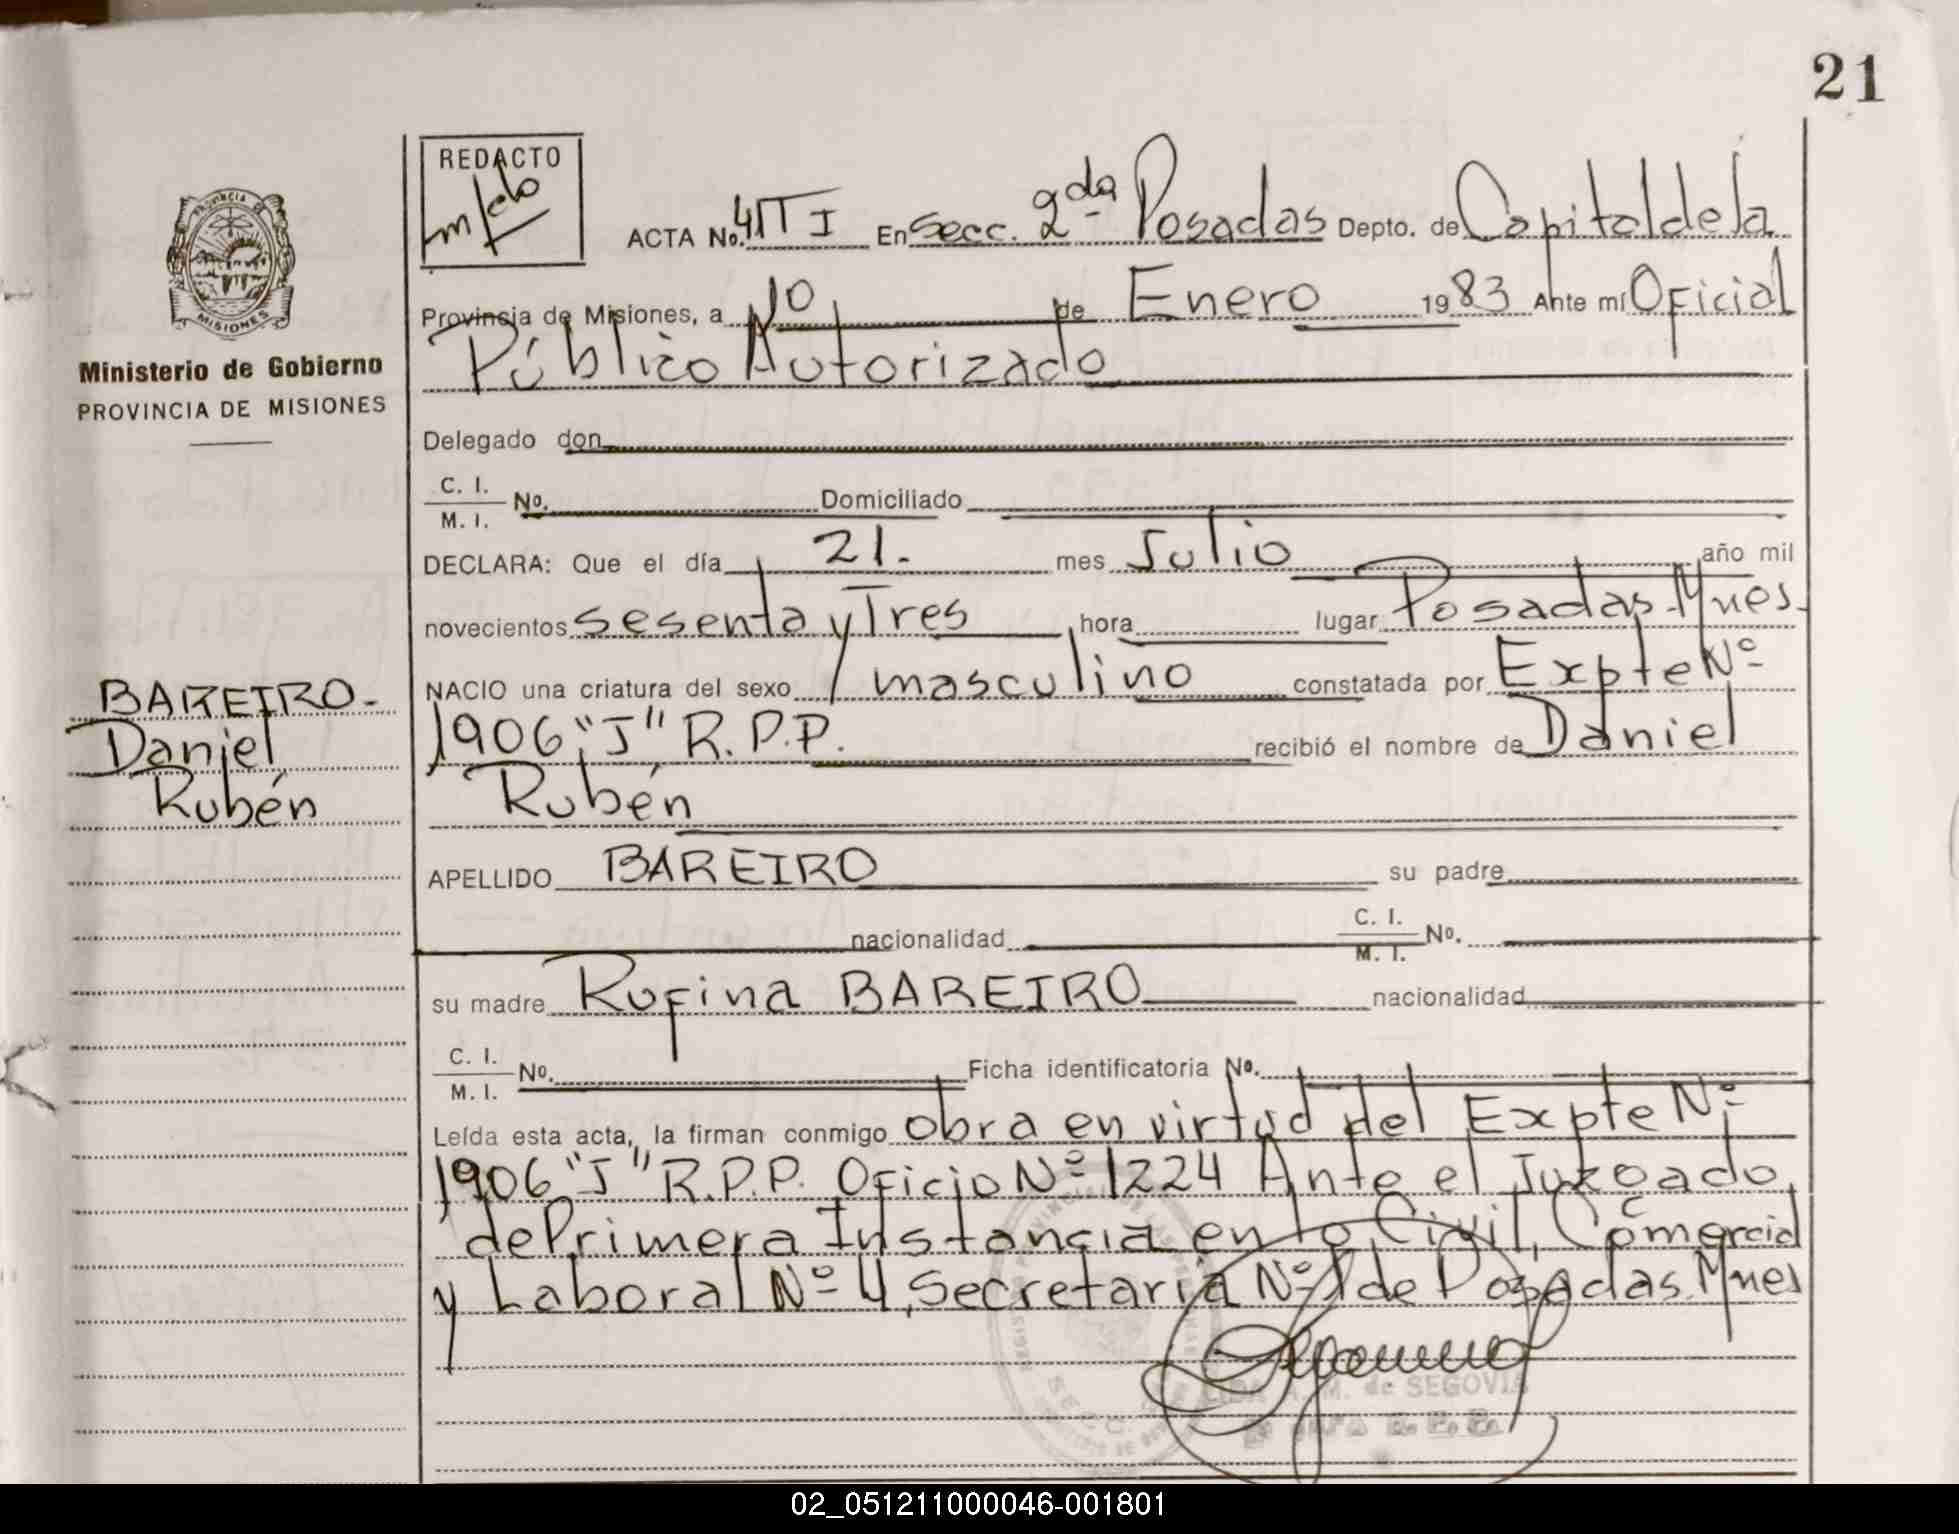 21
REDACTO
PROVINCIA
MISIONES
Ministerio de Gobierno
PROVINCIA DE MISIONES
BAREIRO-
Daniel
Rubén
ACTA No. 4 T I En Secc. 2da Posadas Depto. de Capital de la
Provincia de Misiones, a 10 de Enero 1983 Ante mí Oficial
Público Autorizado
Delegado don
C. I.
M. I. No. Domiciliado
DECLARA: Que el día 21. mes Julio año mil
novecientos sesenta y Tres hora lugar Posadas-Mnes.
NACIO una criatura del sexo masculino constatada por Expte Nº
1906 "J" R.P.P. recibió el nombre de Daniel
Rubén
APELLIDO BAREIRO su padre
nacionalidad C. I. M. I. No.
su madre Rufina BAREIRO nacionalidad
C. I.
M. I. No. Ficha identificatoria No.
Leída esta acta, la firman conmigo obra en virtud del Expte Nº
1906 "J" R.P.P. Oficio Nº 1224 Ante el Juzgado
de Primera Instancia en lo Civil, Comercial
y Laboral Nº 4, Secretaria Nº 1 de Posadas Mnes
A. M. de SEGOVIA
02_051211000046-001801